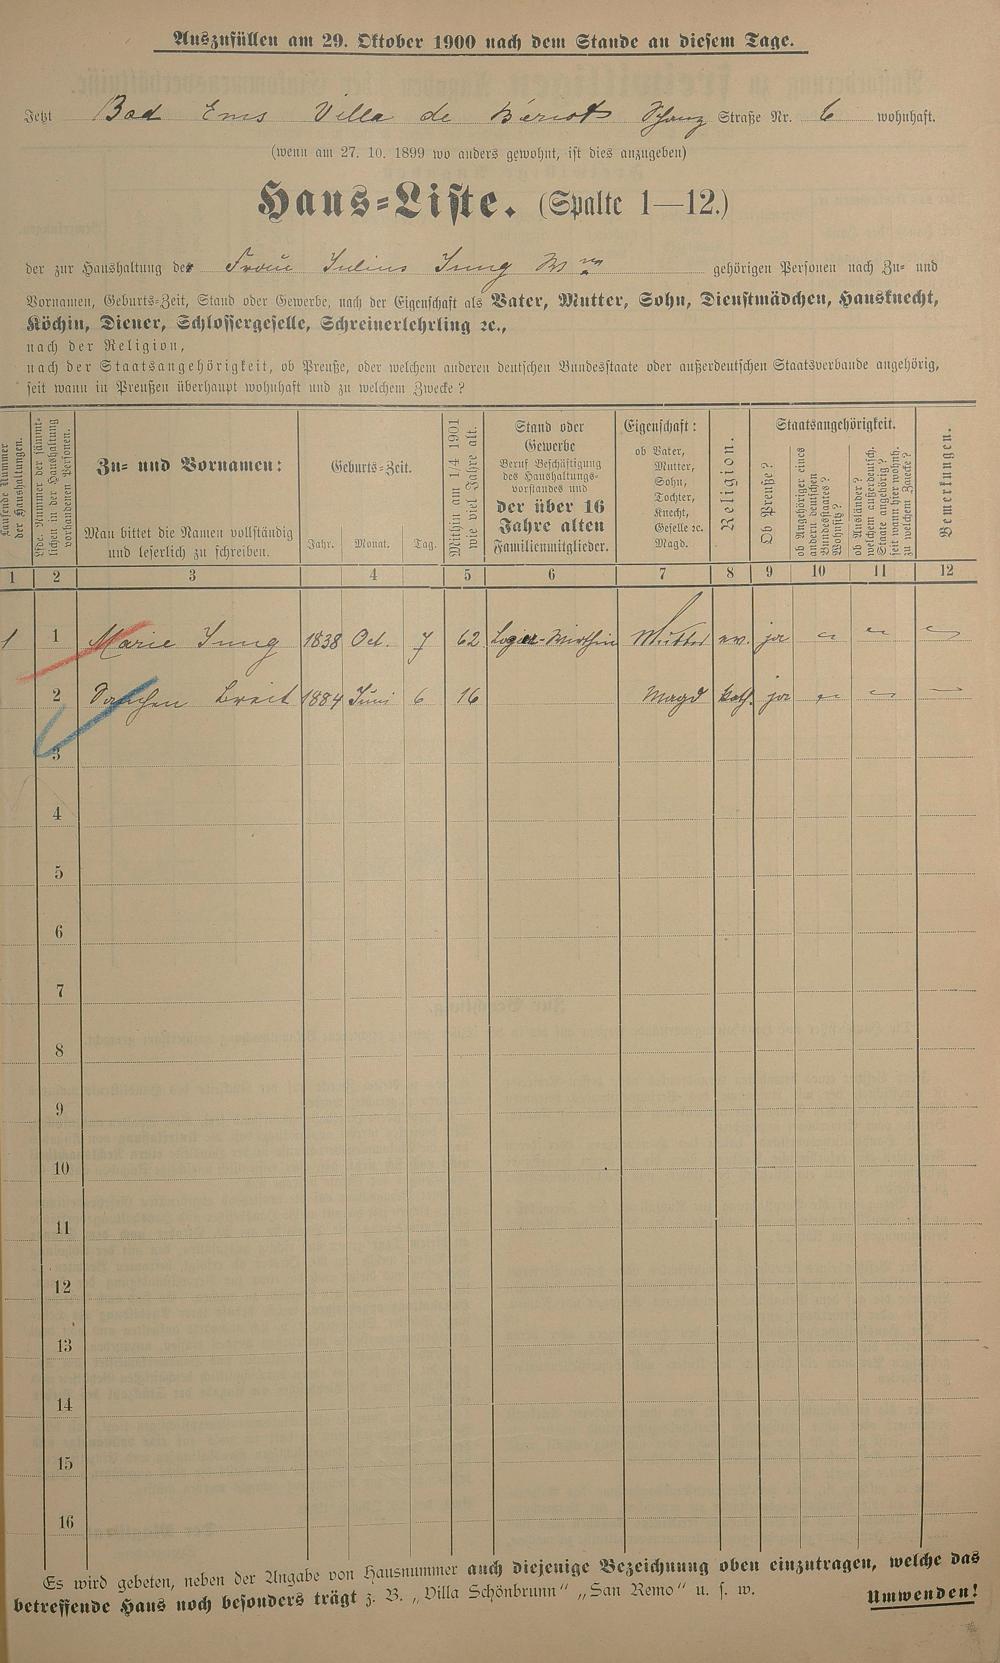 Auszufüllen am 29. Oktober 1900 nach dem Stande an diesem Tage.
Jetzt Bad Ems Villa de Bériot Schanz Straße Nr. 6 wohnhaft.
(wenn am 27. 10. 1899 wo anders gewohnt, ist dies anzugeben)
Haus-Liste. (Spalte 1—12.)
der zur Haushaltung der Frau Julius Jung Wwe gehörigen Personen nach Zu- und
Vornamen, Geburts-Zeit, Stand oder Gewerbe, nach der Eigenschaft als Vater, Mutter, Sohn, Dienstmädchen, Hausknecht,
Köchin, Diener, Schlossergeselle, Schreinerlehrling ꝛc.,
nach der Religion,
nach der Staatsangehörigkeit, ob Preuße, oder welchem anderen deutschen Bundesstaate oder außerdeutschen Staatsverbande angehörig,
seit wann in Preußen überhaupt wohnhaft und zu welchem Zwecke?
Laufende Nummer
der Haushaltungen.
Lfde. Nummer der sämmt-
lichen in der Haushaltung
vorhandenen Personen.
Zu- und Vornamen:
Man bittet die Namen vollständig
und leserlich zu schreiben.
Geburts-Zeit.
Jahr. Monat. Tag.
Mithin am 1/4 1901
wie viel Jahre alt.
Stand oder
Gewerbe
Beruf Beschäftigung
des Haushaltungs-
vorstandes und
der über 16
Jahre alten
Familienmitglieder.
Eigenschaft:
ob Vater,
Mutter,
Sohn,
Tochter,
Knecht,
Geselle ꝛc.
Magd.
Religion.
Staatsangehörigkeit.
Ob Preuße?
ob Angehöriger eines
andern deutschen
Bundesstaates?
Wohnsitz?
ob Ausländer?
welchem außerdeutsch.
Staate angehörig?
seit wann hier wohnh.
zu welchem Zwecke?
Bemerkungen.
1 2 3 4 5 6 7 8 9 10 11 12
1 1 Marie Jung 1838 Oct. 7 62 Logir-Wirthin Mutter ev. ja — — —
2 Breit 1884 Juni 6 16 Magd kath. ja — — —
3
4
5
6
7
8
9
10
11
12
13
14
15
16
Es wird gebeten, neben der Angabe von Hausnummer auch diejenige Bezeichnung oben einzutragen, welche das
betreffende Haus noch besonders trägt z. B. „Villa Schönbrunn“ „San Remo“ u. s. w.
Umwenden!